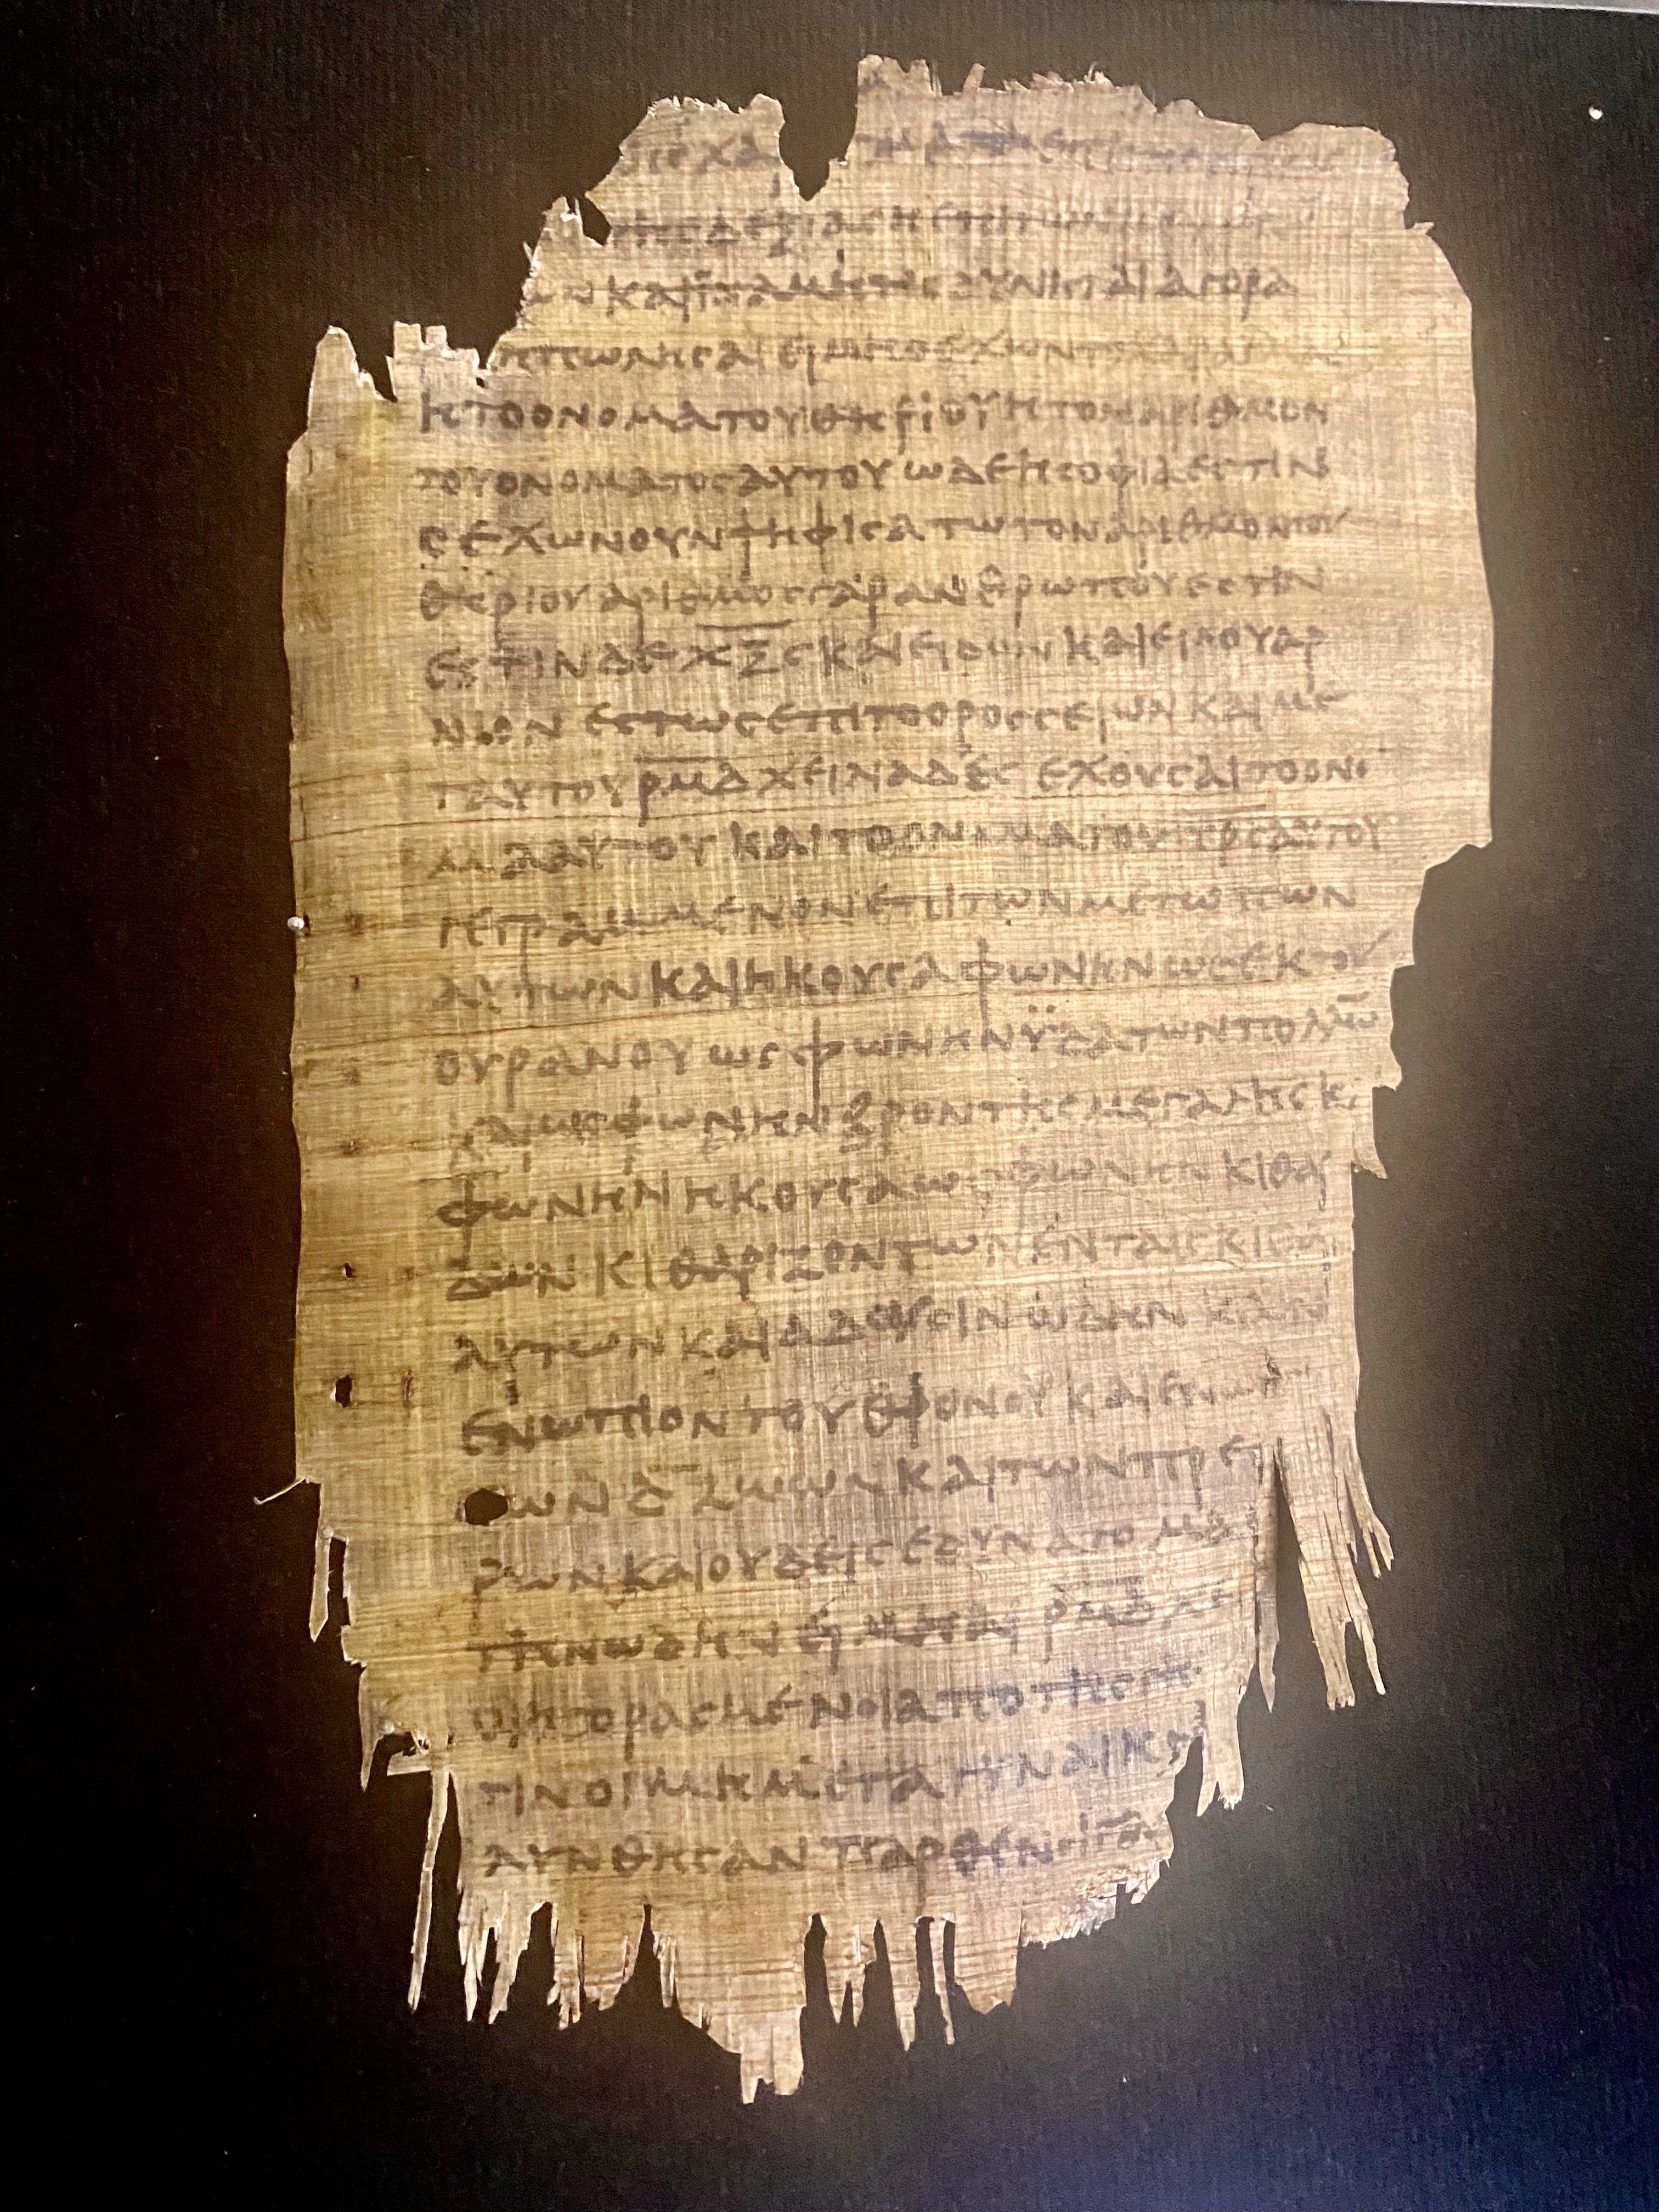 τηϲ δεξιαϲ η επι των
και ϊνα μητιϲ δυνηται αγορα
πωληϲαι ει μη ο εχων το
η το ονομα του θηριου η τον αριθμον
του ονοματοϲ αυτου ωδε η ϲοφια εϲτιν
ο εχων ουν ψηφιϲατω τον αριθμον του
θηριου αριθμοϲ γαρ ανθρωπου εϲτιν
εϲτιν δε χ̅ξ̅ϛ̅ και ειδον και ειδου αρ
νιον εϲτωϲ επι το οροϲ ϲειων και με
τ αυτου ρ̅μ̅δ̅ χειλιαδεϲ εχουϲαι το ονο
μα αυτου και το ονομα του π̅ρ̅ϲ̅ αυτου
γεγραμμενον επι των μετωπων
αυτων και ηκουϲα φωνην ωϲ εκ του
ουρανου ωϲ φωνην ϋδατων πολλω̅
και ωϲ φωνην βροντηϲ μεγαληϲ κ
φωνην ηκουϲα ωϲ φωνην κιθαρ
δων κιθαριζοντων εν ταιϲ κιθα
αυτων και αδουϲιν ωδην καιν
ενωπιον του θρονου και ενωπι
των δ̅ ζωων και των πρε
ρων και ουδειϲ εδυνατο μα
την ωδην ει μη αι ρ̅μ̅δ̅ χε
οι ηγοραϲμενοι απο τηϲ γη
τιν οι μη μετα γυναικ
λυνθηϲαν παρθενοι γα